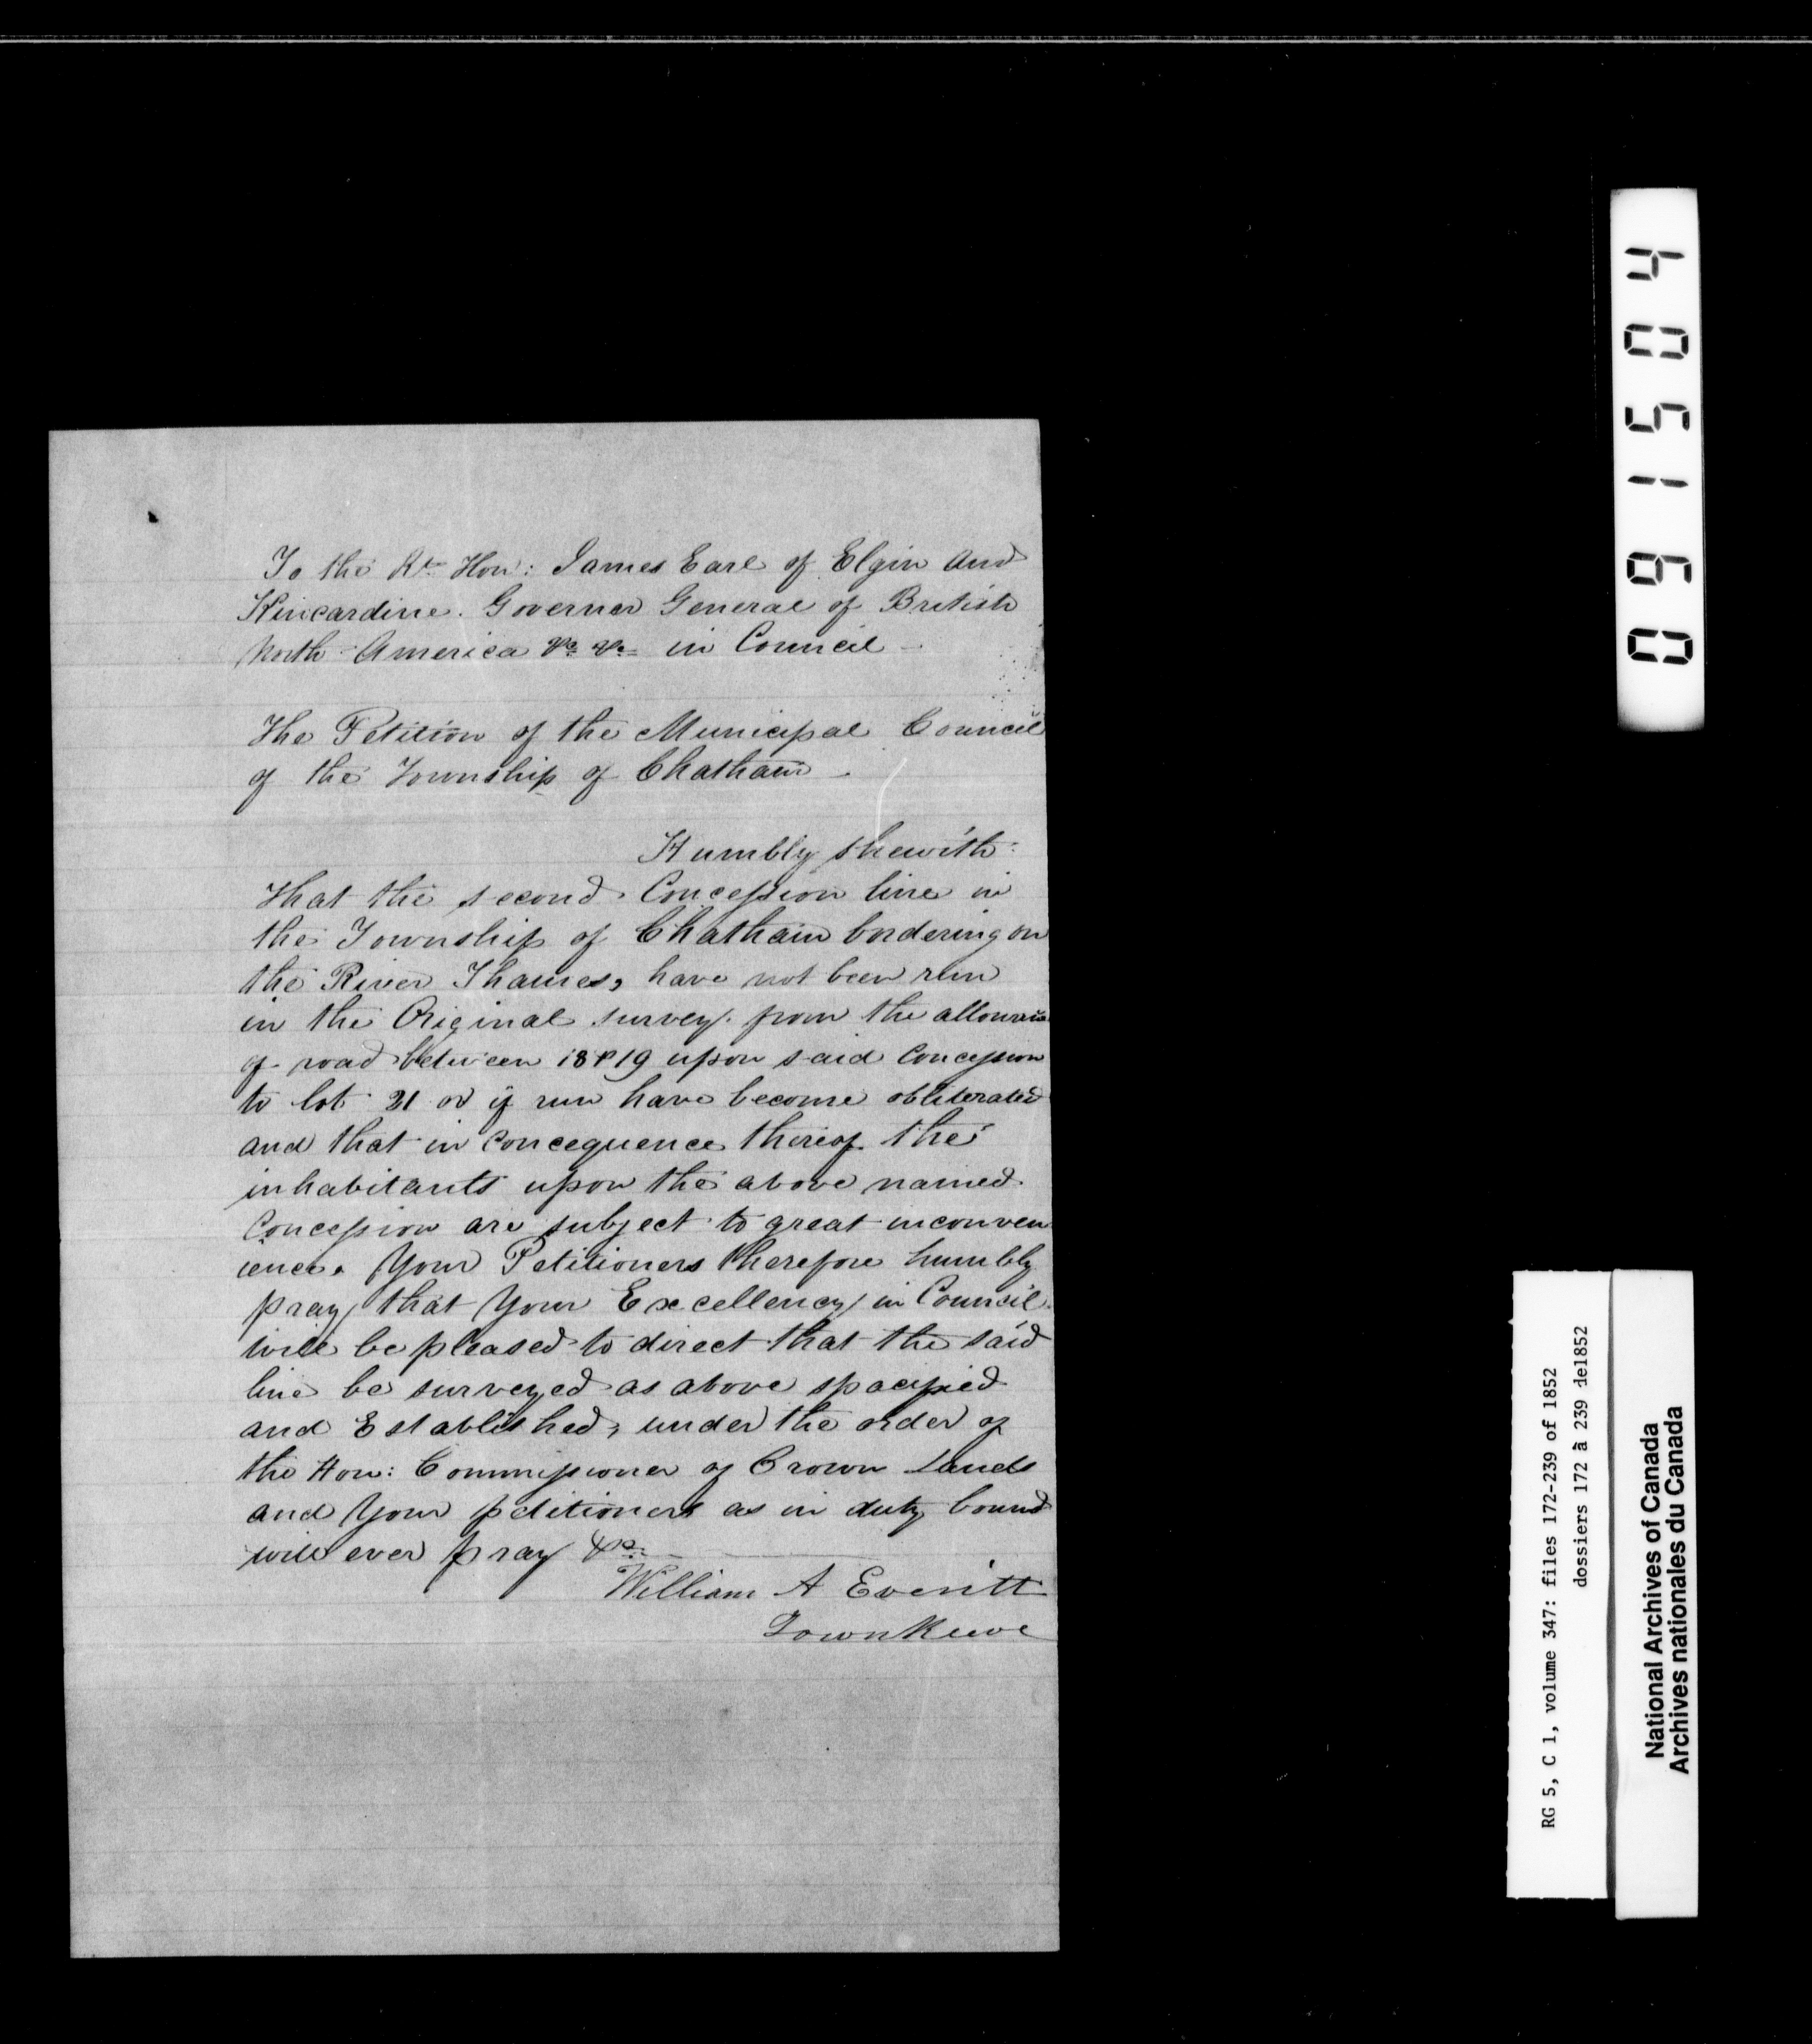 To the Rt Hon: James Earl of Elgin and
Kincardine. Governer General of British
North America &c &c in Council
The Petition of the Municipal Council
of the Township of Chatham
Humbly shewith
That the second Concession line in
the Township of Chatham bordering on
the River Thames, have not been run
in the Original survey. from the allowance
of road between 18 & 19 upon said Concession
to lot 21 or if run have become obliterated
and that in Concequence thereof the
inhabitants upon the above named
Concession are subject to great inconven
ience. Your Petitioners therefore humbly
pray, that Your Excellency in Council
will be pleased to direct that the said
line be surveyed as above spacified
and Established, under the order of
the Hon: Commissioner of Crown Lands
and Your petitioners as in duty bound
will ever pray &c
William A Everitt
Town Reeve
091504
RG 5, C 1, volume 347: files 172-239 of 1852
dossiers 172 à 239 de1852
National Archives of Canada
Archives nationales du Canada